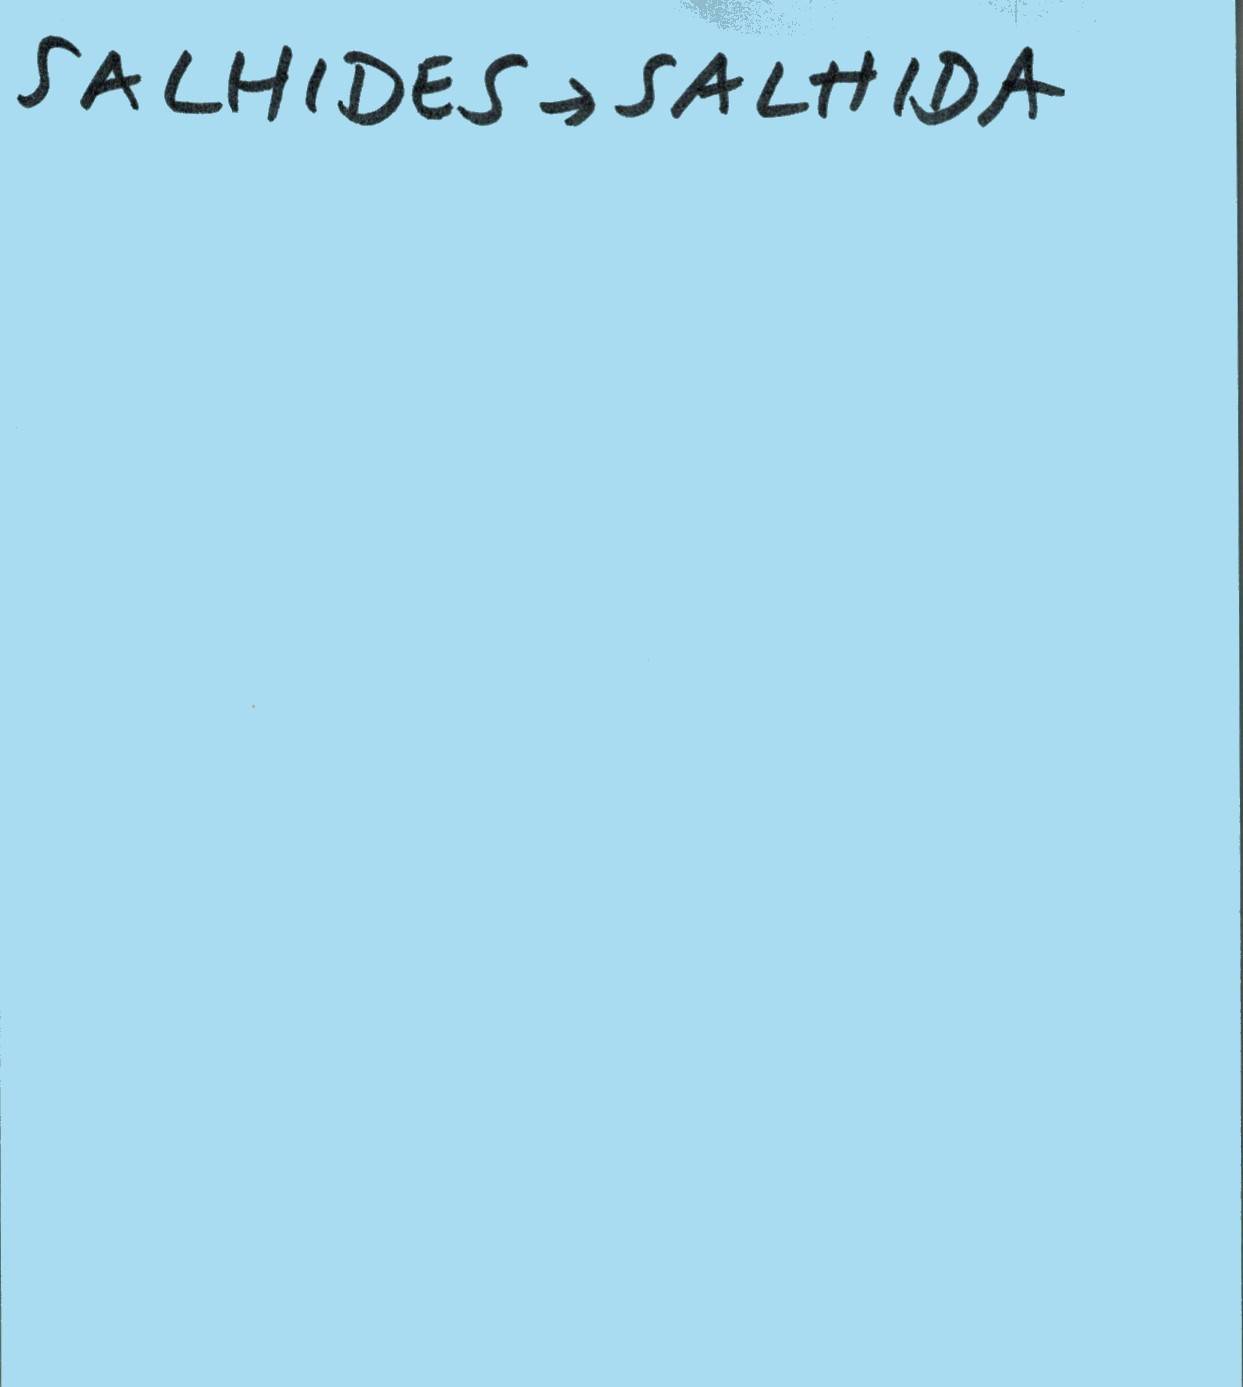 SALHIDES → SALHIDA